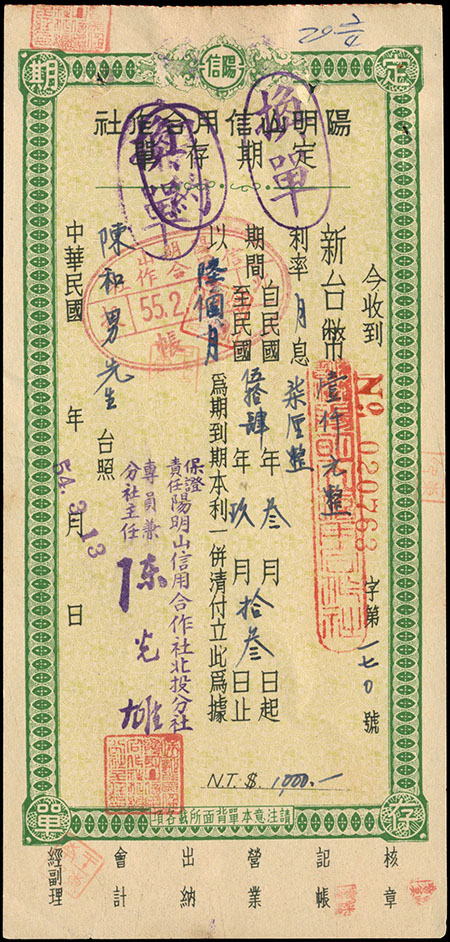 定期存單
陽信
陽明山信用合作社
定期存單
換單
今收到
No. 020763
字第一七〇號
新台幣壹仟元整
利率月息柒厘整
期間自民國伍拾肆年叁月拾叁日起
至民國年玖月日止
以陸個月為期到期本利一併清付立此為據
陳和男先生台照
保證責任陽明山信用合作社北投分社
專員兼分社主任
陳光雄
中華民國年月日
54.3.13
55.2
N.T.$. 1,000.-
請注意本單背面所載各項
核章
記帳
營業
出納
會計
經副理